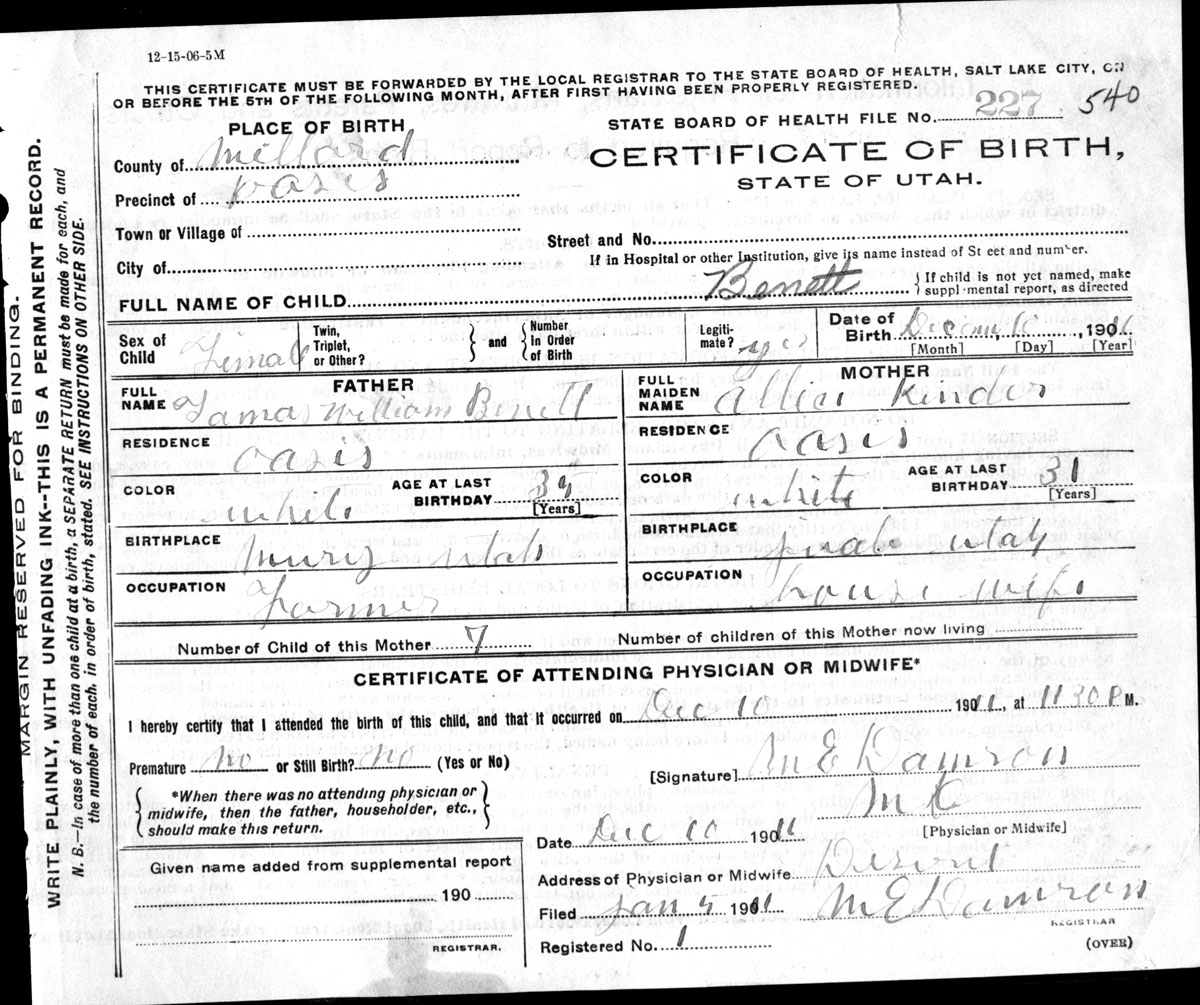 12-15-06-5M
THIS CERTIFICATE MUST BE FORWARDED BY THE LOCAL REGISTRAR TO THE STATE BOARD OF HEALTH, SALT LAKE CITY, ON
OR BEFORE THE 5TH OF THE FOLLOWING MONTH, AFTER FIRST HAVING BEEN PROPERLY REGISTERED.
STATE BOARD OF HEALTH FILE No. 227 540
PLACE OF BIRTH
CERTIFICATE OF BIRTH,
STATE OF UTAH.
County of Millard
Precinct of oasis
Town or Village of
Street and No.
City of
If in Hospital or other Institution, give its name instead of St eet and number.
FULL NAME OF CHILD Benett { If child is not yet named, make
suppl·mental report, as directed
Sex of Child Female
Twin, Triplet, or Other?
and
Number in Order of Birth
Legiti-mate? yes
Date of Birth 10 190
[Month] [Day] [Year]
FATHER
MOTHER
FULL NAME William
FULL MAIDEN NAME Kinder
RESIDENCE oasis
RESIDENCE oasis
COLOR white
AGE AT LAST BIRTHDAY
[Years]
COLOR white
AGE AT LAST BIRTHDAY 31
[Years]
BIRTHPLACE utah
BIRTHPLACE utah
OCCUPATION Farmer
OCCUPATION house wife
Number of Child of this Mother 7
Number of children of this Mother now living
CERTIFICATE OF ATTENDING PHYSICIAN OR MIDWIFE*
I hereby certify that I attended the birth of this child, and that it occurred on Dec 10 190, at 11 30 P M.
Premature no or Still Birth? no (Yes or No)
[Signature] M E Damron
*When there was no attending physician or
midwife, then the father, householder, etc.,
should make this return.
[Physician or Midwife]
Date Dec 10 190
Given name added from supplemental report
190
Address of Physician or Midwife
Filed Jan 190 M E Damron
REGISTRAR
REGISTRAR.
Registered No. 1
(OVER)
MARGIN RESERVED FOR BINDING.
WRITE PLAINLY, WITH UNFADING INK--THIS IS A PERMANENT RECORD.
N. B.—In case of more than one child at a birth, a SEPARATE RETURN must be made for each, and
the number of each, in order of birth, stated. SEE INSTRUCTIONS ON OTHER SIDE.